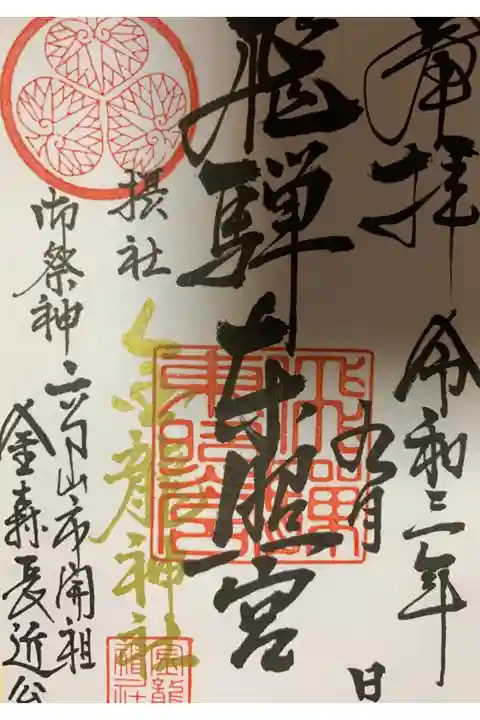 奉拝
令和三年
九月
日
飛騨東照宮
摂社
金龍神社
御祭神
高山市開祖
金森長近公
飛騨
東照宮
金龍
神社